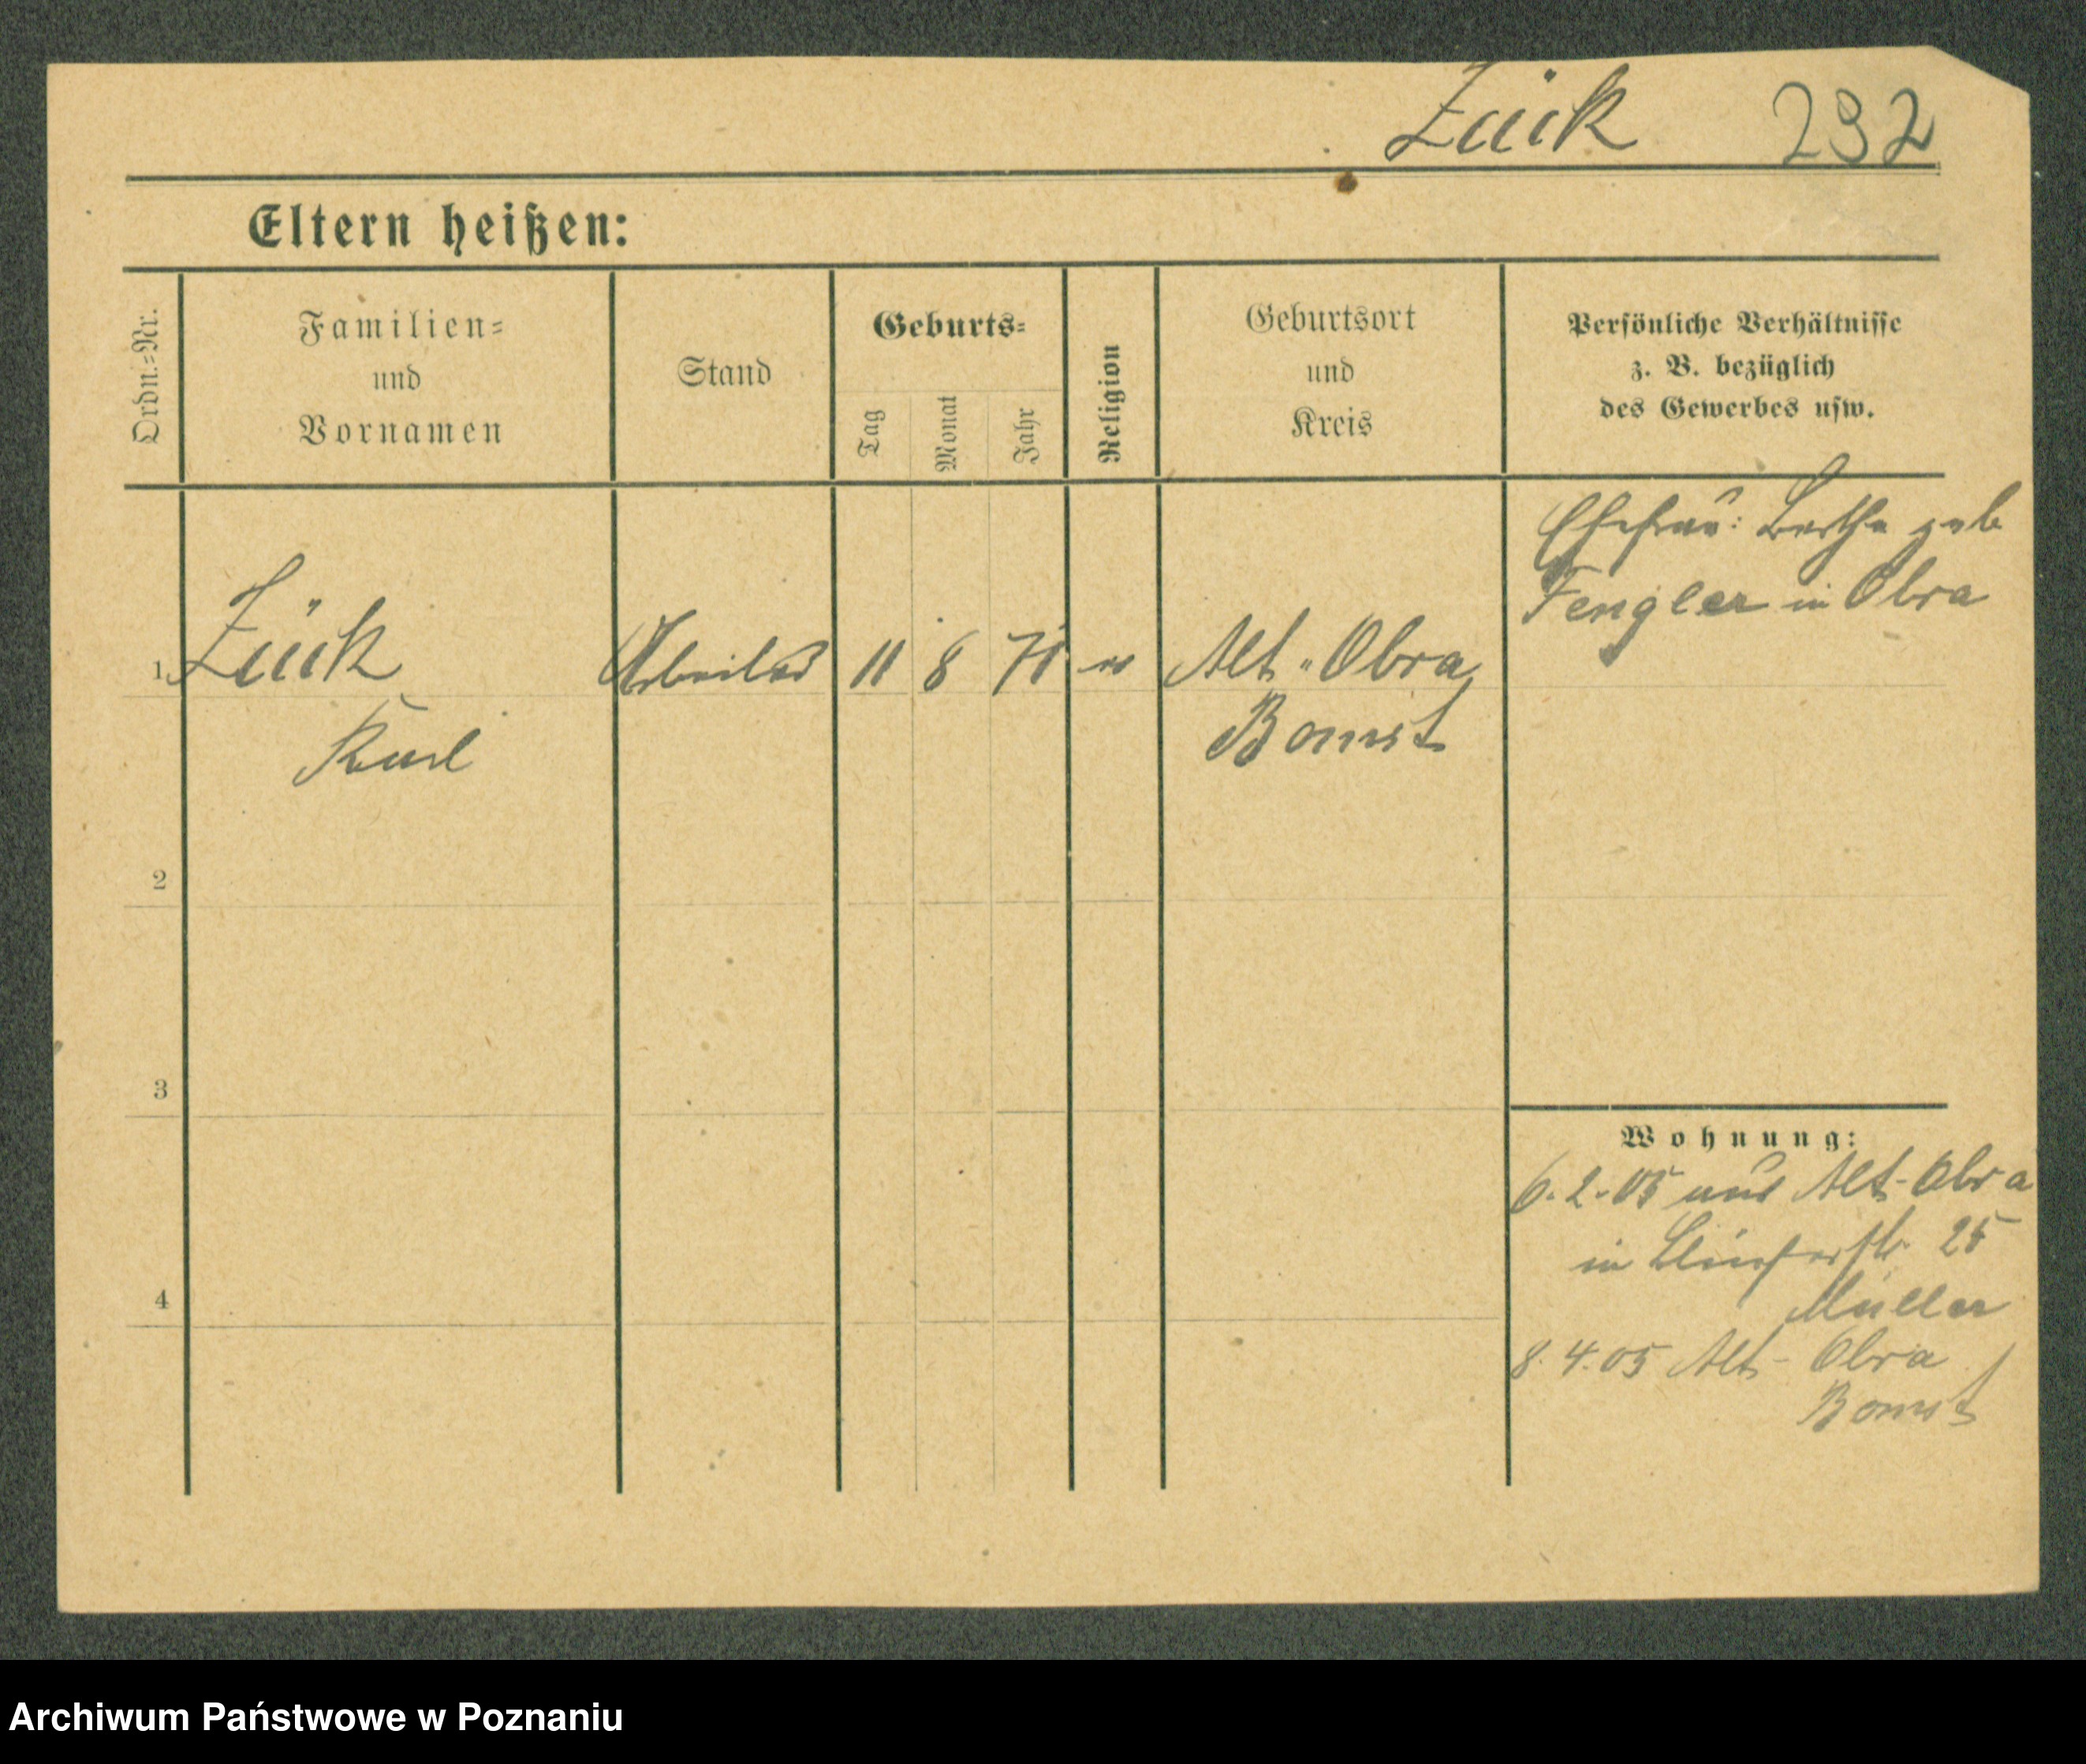 Zück 292
Eltern heißen:
Ordn.=Nr.
Familien=
und
Vornamen
Stand
Geburts=
Tag
Monat
Jahr
Religion
Geburtsort
und
Kreis
Persönliche Verhältnisse
z. B. bezüglich
des Gewerbes usw.
Ehefrau: Bertha geb
Fengler in Obra
1 Zück Arbeiter 11 8 71 Alt-Obra
Karl Bomst
2
3
4
Wohnung:
6.2.05 aus Alt-Obra
in 25
Müller
8.4.05 Alt-Obra
Bomst
Archiwum Państwowe w Poznaniu